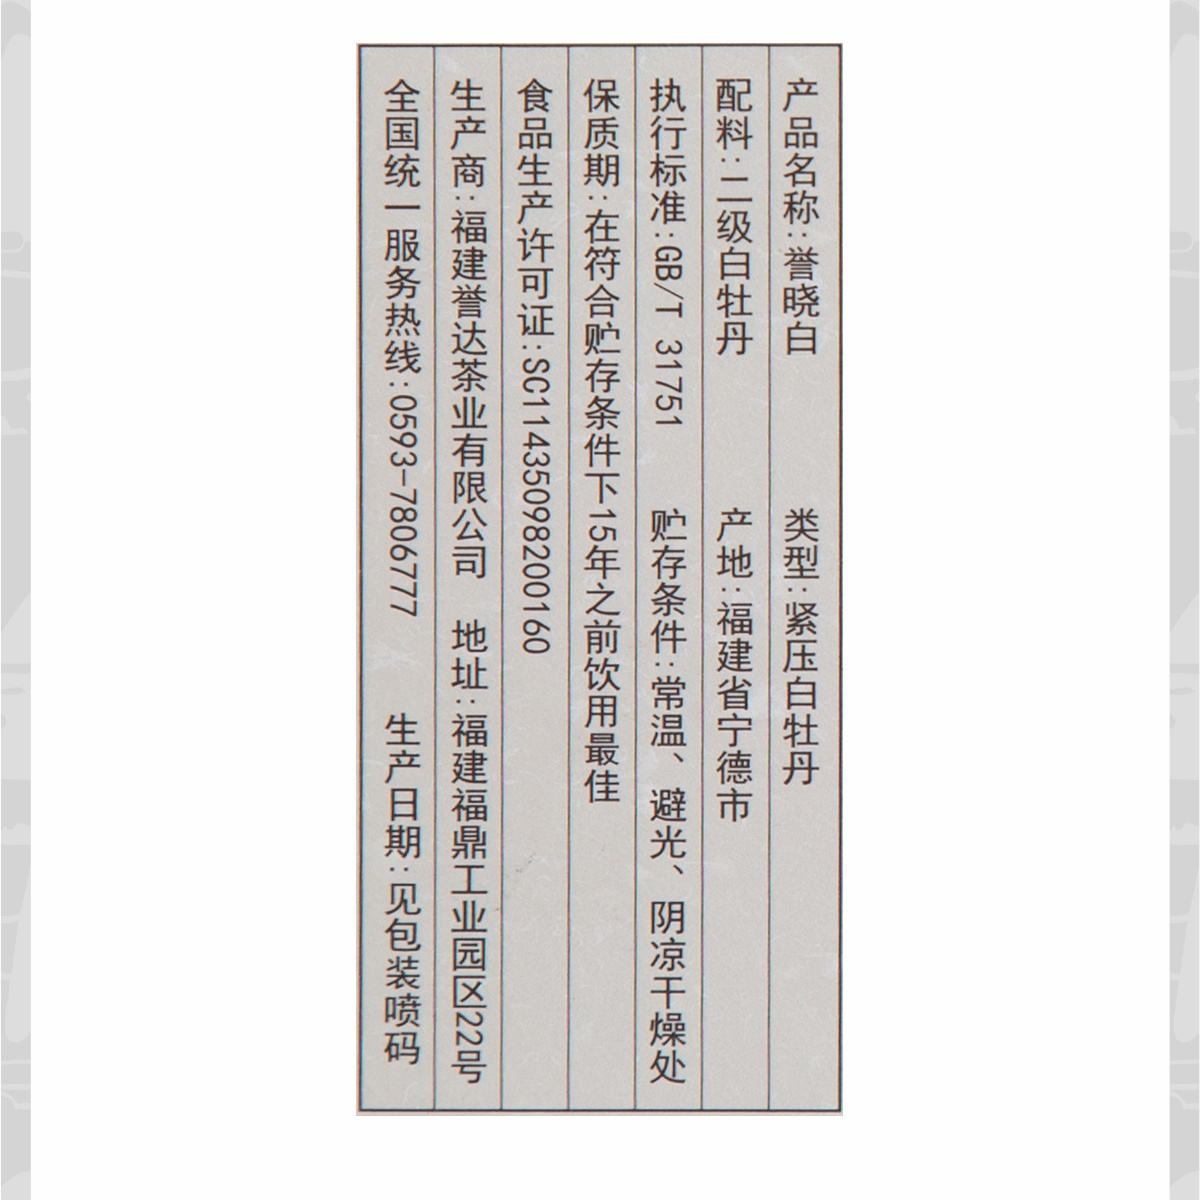 产品名称:誉晓白 类型:紧压白牡丹
配料:二级白牡丹 产地:福建省宁德市
执行标准:GB/T 31751 贮存条件:常温、避光、阴凉干燥处
保质期:在符合贮存条件下15年之前饮用最佳
食品生产许可证:SC11435098200160
生产商:福建誉达茶业有限公司 地址:福建福鼎工业园区22号
全国统一服务热线:0593-7806777 生产日期:见包装喷码